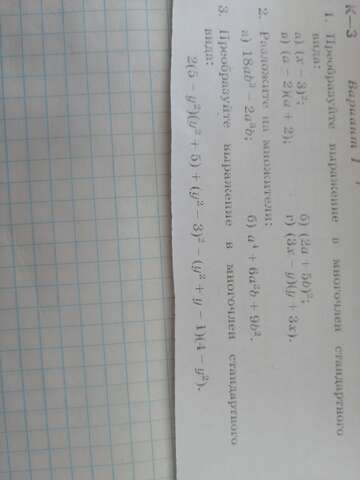 К—3 Вариант 1
1. Преобразуйте выражение в многочлен стандартного
вида:
а) (x − 3)²; б) (2a + 5b)²;
в) (a − 2)(a + 2); г) (3x − y)(y + 3x).
2. Разложите на множители:
а) 18ab³ − 2a³b; б) a⁴ + 6a²b + 9b².
3. Преобразуйте выражение в многочлен стандартного
вида:
2(5 − y²)(y² + 5) + (y² − 3)² − (y² + y − 1)(4 − y²).